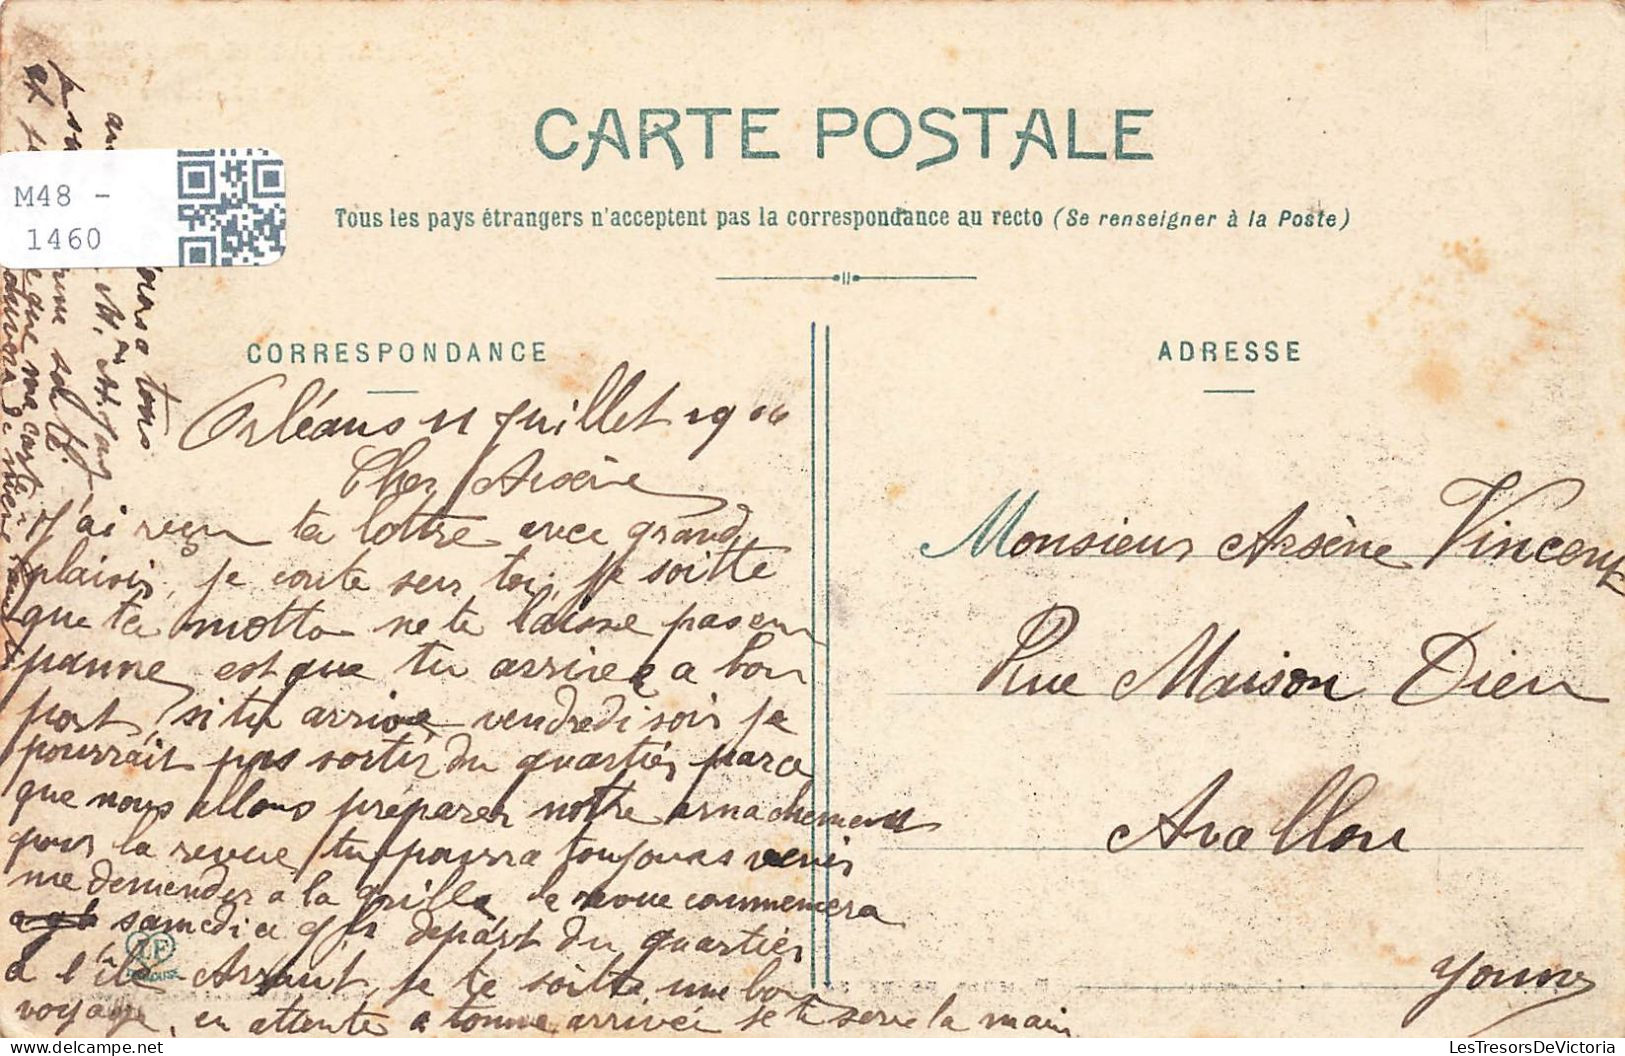 CARTE POSTALE
Tous les pays étrangers n'acceptent pas la correspondance au recto (Se renseigner à la Poste)
M48 -
1460
CORRESPONDANCE
ADRESSE
Orléans 11 Juillet 1906
Cher Arsène
J'ai reçu ta lottre avec grand
plaisir, je conte sur toi, je soitte
que ta motto ne te laisse pas en
panne est que tu arrivee a bon
port, si tu arrive vendredi soir je
pourrait pas sortir du quartier parce
que nous allons préparer notre arnachement
pour la revue, tu pourra toujours venir
me demender a la grille la revue commencera
samedi a 9h depart du quartier
a l'île Arraut, je te soitte une bon
voyage, en attente a bonne arrivée je te serre la main
a tous
que ma carte
Monsieur Arsène Vincent
Rue Maison Dieu
Avallon
Yonne
LesTresorsDeVictoria